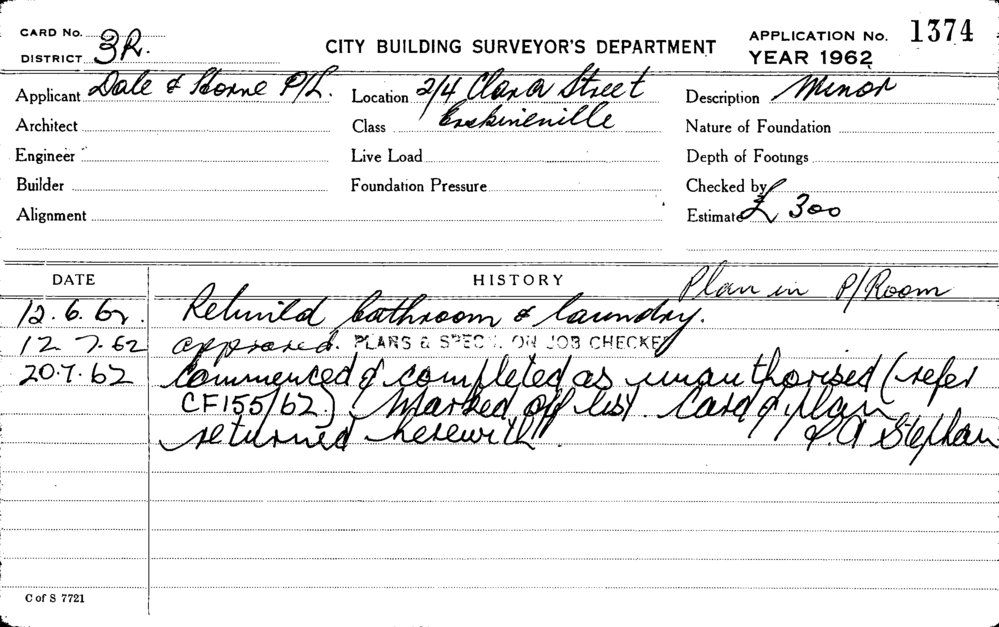 CARD No. 3R.
DISTRICT
CITY BUILDING SURVEYOR'S DEPARTMENT
APPLICATION No. 1374
YEAR 1962
Applicant Dale & Horne P/L.
Location 2/4 Clara Street
Description Minor
Architect
Class Erskineville
Nature of Foundation
Engineer
Live Load
Depth of Footings
Builder
Foundation Pressure
Checked by
Alignment
Estimate £ 300
DATE
HISTORY
Plan in P/Room
12.6.62. Rebuild bathroom & laundry.
12.7.62 approved. PLANS & SPEC'N. ON JOB CHECKED
20.7.62 Commenced & completed as unauthorised (refer
CF155/62) Marked off list. Card & plan
returned herewith. Stephan
C of S 7721